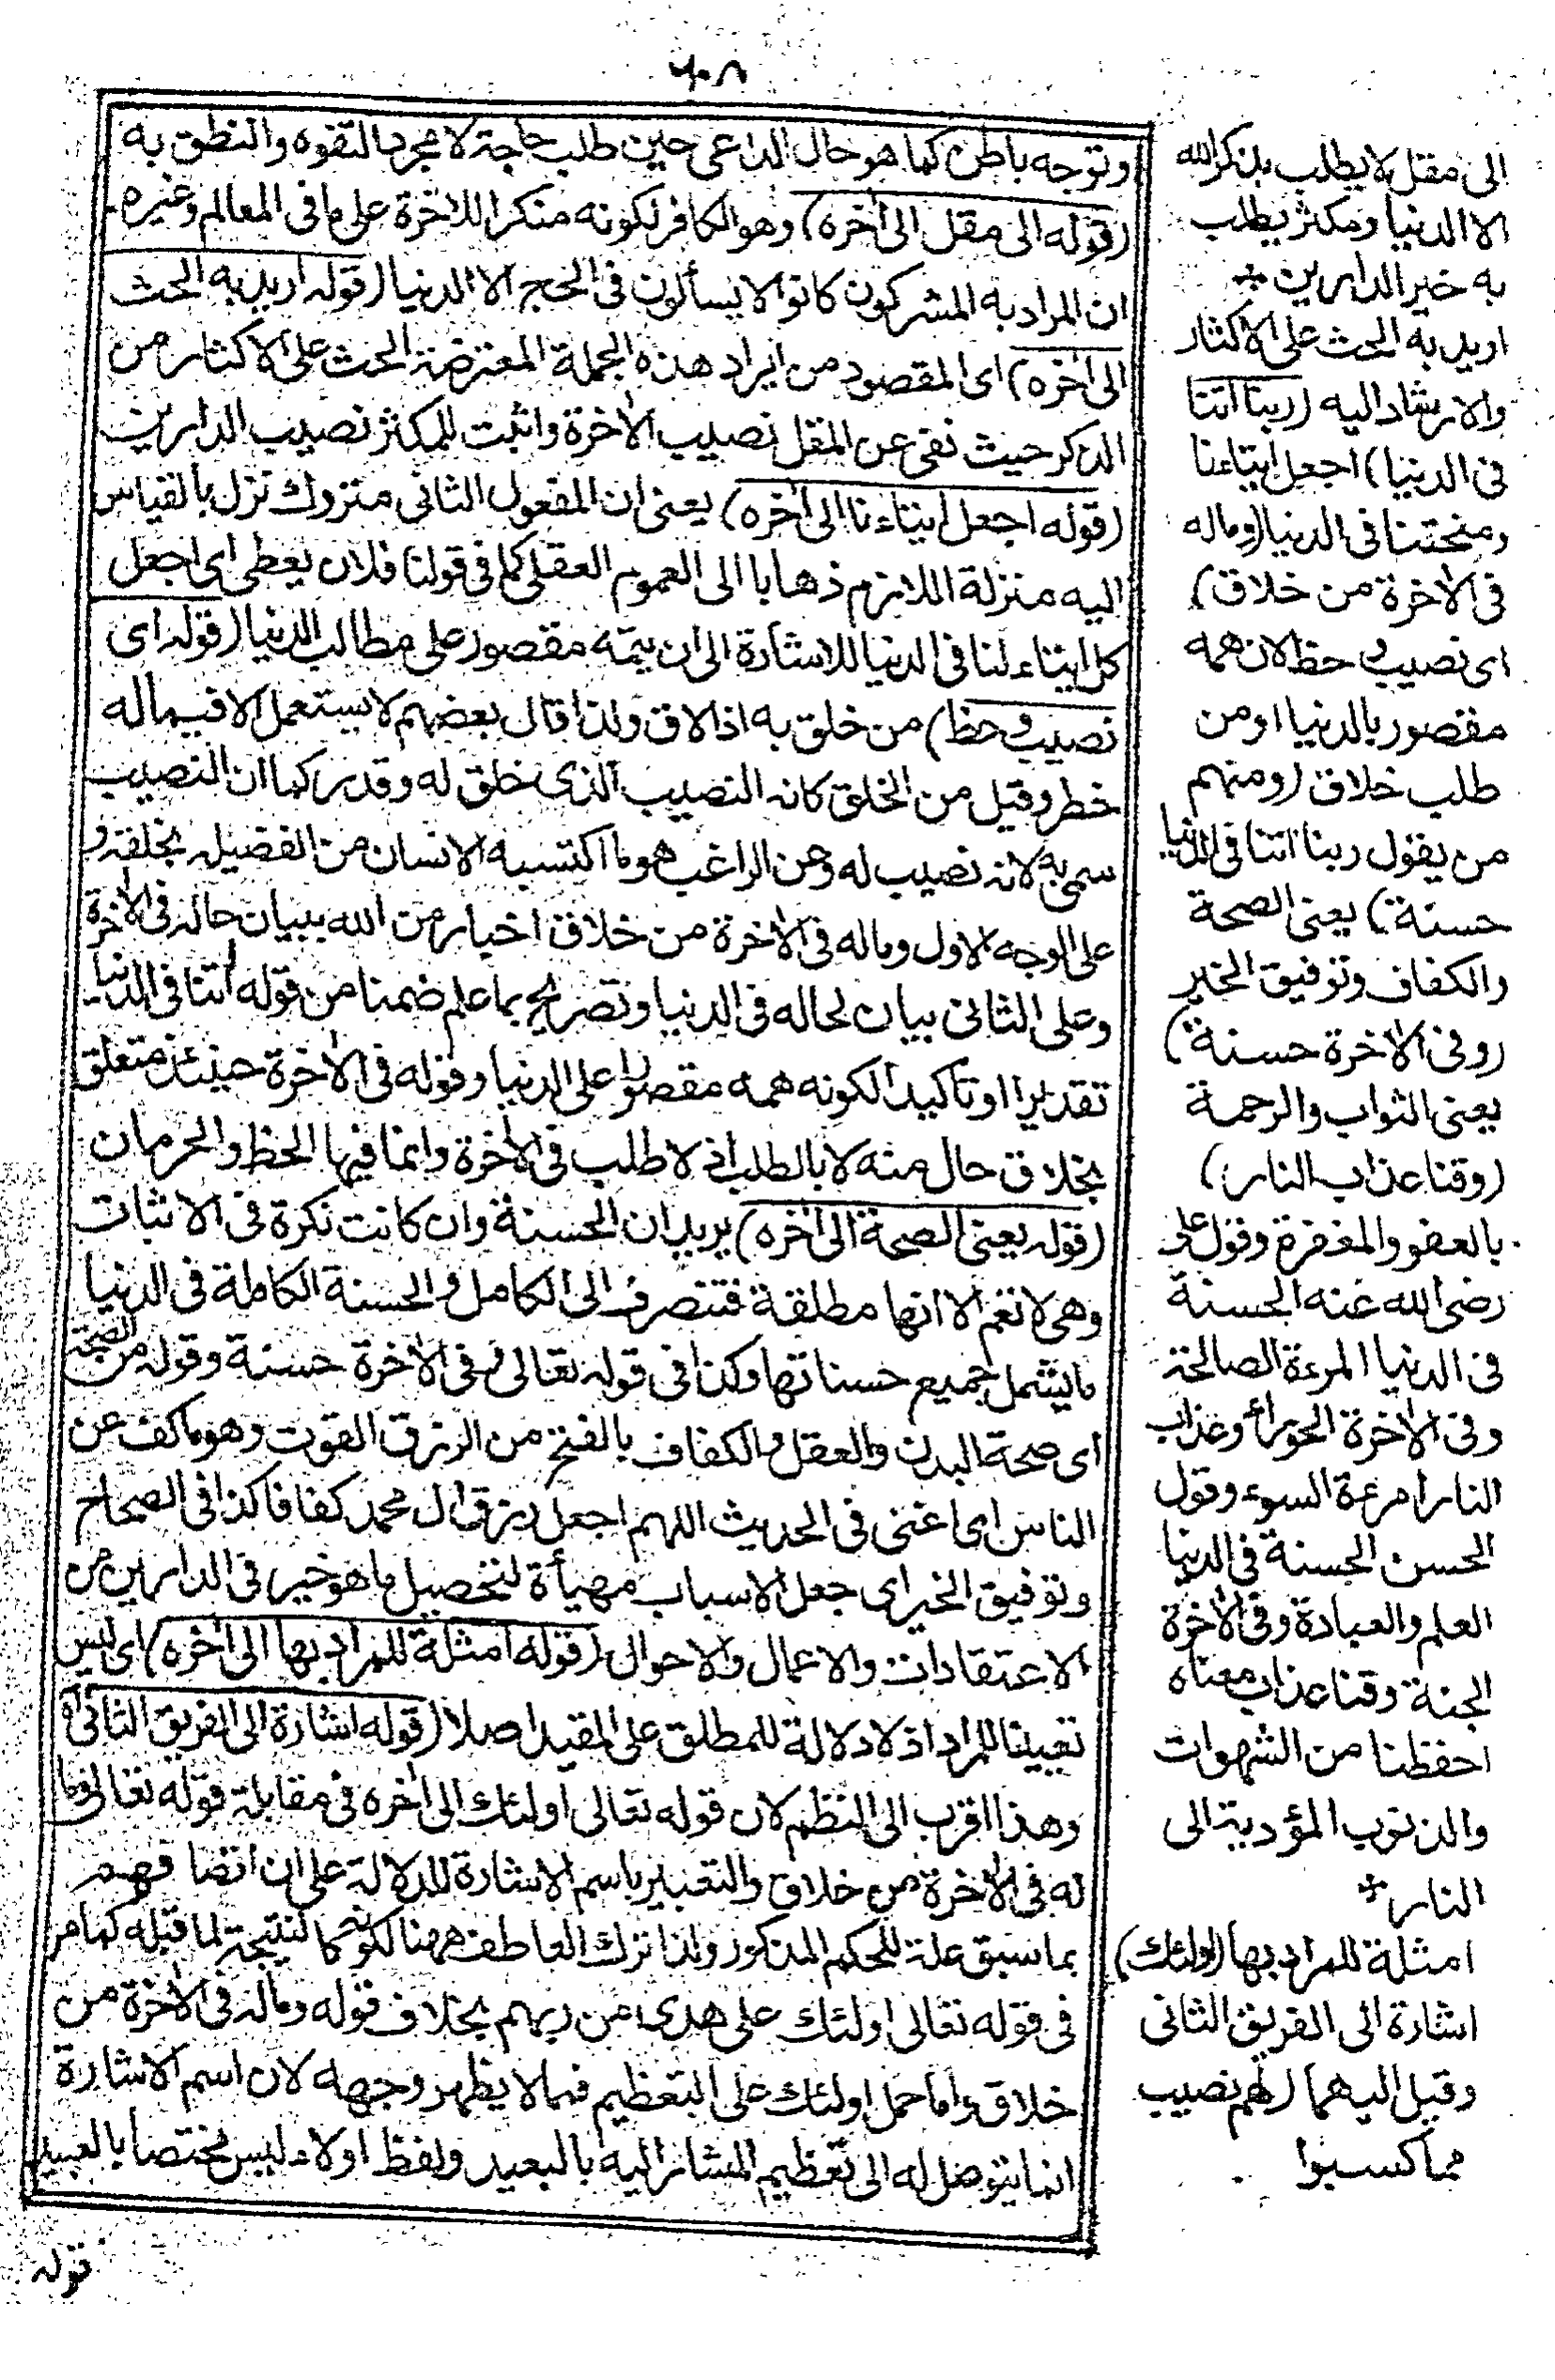 ٦٠٨
وتوجه باطن كما هو حال الداعى حين طلب حاجة لا مجرد التفوه والنطق به
(قوله الى مقل الى اٰخره) وهو الكافر لكونه منكرا للاٰخرة على ما فى المعالم وغيره
ان المراد به المشركون كانوا لا يسألون فى الحج الا الدنيا (قوله اريد به الحث
الى اٰخره) اى المقصود من ايراد هذه الجملة المعترضة الحث على الاكثار من
الذكر حيث نفى عن المقل نصيب الاٰخرة واثبت للمكثر نصيب الدارين
(قوله اجعل ايتاءنا الى اٰخره) يعنى ان المفعول الثانى متروك نزل بالقياس
اليه منزلة اللازم ذهابا الى العموم العقلى كما فى قولنا فلان يعطى اى اجعل
كل ايتاء لنا فى الدنيا للاشارة الى ان همته مقصور على مطالب الدنيا (قوله اى
نصيب وحظ) من خلق به اذا لاق ولذا قال بعضهم لا يستعمل الا فيما له
خطر وقيل من الخلق كانه النصيب الذى خلق له وقدر كما ان النصيب
سمى به لانه نصيب له وعن الراغب هو ما اكتسبه الانسان من الفضيلة بخلقه و
على الوجه الاول وماله فى الاٰخرة من خلاق اخبار من الله ببيان حاله فى الاٰخرة
وعلى الثانى بيان لحاله فى الدنيا وتصريح بما علم ضمنا من قوله اٰتنا فى الدنيا
تقديرا او تاكيدا لكونه همه مقصورا على الدنيا وقوله فى الاٰخرة حينئذ متعلق
بخلاق حال منه لا بالطلب اذ لا طلب فى الاٰخرة وانما فيها الحظ والحرمان
(قوله يعنى الصحة الى اٰخره) يريد ان الحسنة وان كانت نكرة فى الاثبات
وهى لا تعم الا انها مطلقة فتنصرف الى الكامل والحسنة الكاملة فى الدنيا
ما يشمل جميع حسناتها وكذا فى قوله تعالى وفى الاٰخرة حسنة وقوله من الصحة
اى صحة البدن والعقل والكفاف بالفتح من الرزق القوت وهو ما كف عن
الناس اى اغنى فى الحديث اللهم اجعل رزق اٰل محمد كفافا كذا فى الصحاح
وتوفيق الخير اى جعل الاسباب مهيأة لتحصيل ما هو خير فى الدارين من
الاعتقادات والاعمال والاحوال (قوله امثلة للمراد بها الى اٰخره) اى ليس
تعيينا للمراد اذ لا دلالة للمطلق على المقيد اصلا (قوله اشارة الى الفريق الثانى اه
وهذا اقرب الى النظم لان قوله تعالى اولئك الى اٰخره فى مقابلة قوله تعالى وما
له فى الاٰخرة من خلاق والتعبير باسم الاشارة للدلالة على ان اتصافهم
بما سبق علة للحكم المذكور ولذا ترك العاطف ههنا لكونه كالنتيجة لما قبله كما مر
فى قوله تعالى اولئك على هدى من ربهم بخلاف قوله وماله فى الاٰخرة من
خلاق واما حمل اولئك على التعظيم فمما لا يظهر وجهه لان اسم الاشارة
انما يتوصل به الى تعظيم المشار اليه بالبعيد ولفظ اولاء ليس مختصا بالبعيد
قوله
الى مقل لا يطلب بذكر الله
الا الدنيا ومكثر يطلب
به خير الدارين *
اريد به الحث على الاكثار
والارشاد اليه (ربنا اٰتنا
فى الدنيا) اجعل ايتاءنا
ومنحتنا فى الدنيا (وماله
فى الاٰخرة من خلاق)
اى نصيب وحظ لان همه
مقصور بالدنيا او من
طلب خلاق (ومنهم
من يقول ربنا اٰتنا فى الدنيا
حسنة) يعنى الصحة
والكفاف وتوفيق الخير
(وفى الاٰخرة حسنة)
يعنى الثواب والرحمة
(وقنا عذاب النار)
بالعفو والمغفرة وقول على
رضى الله عنه الحسنة
فى الدنيا المرءة الصالحة
وفى الاٰخرة الحوراء وعذاب
النار امرءة السوء وقول
الحسن الحسنة فى الدنيا
العلم والعبادة وفى الاٰخرة
الجنة وقنا عذاب معناه
احفظنا من الشهوات
والذنوب المؤدية الى
النار *
امثلة للمراد بها (اولئك)
اشارة الى الفريق الثانى
وقيل اليهما (لهم نصيب
مما كسبوا